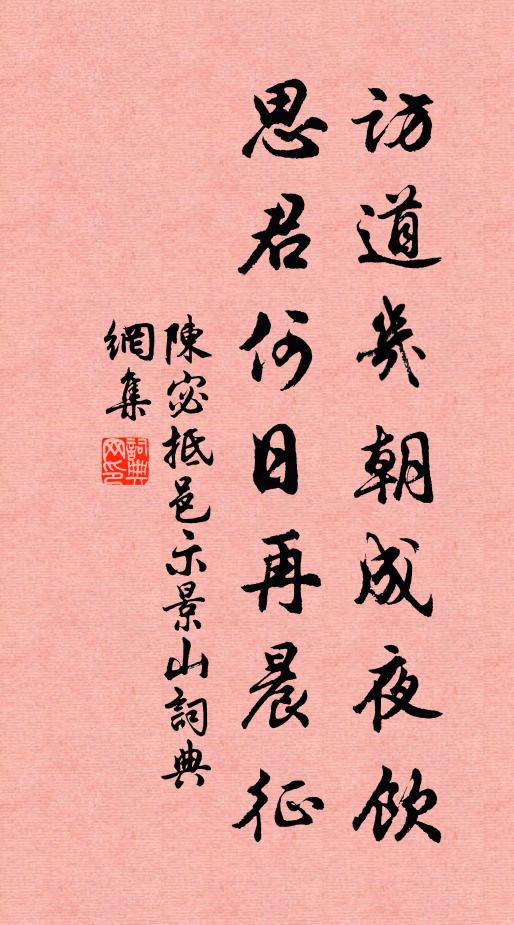 訪道幾朝成夜飲
思君何日再晨征
陳宓抵邑示景山詞典
網集
詞典網印